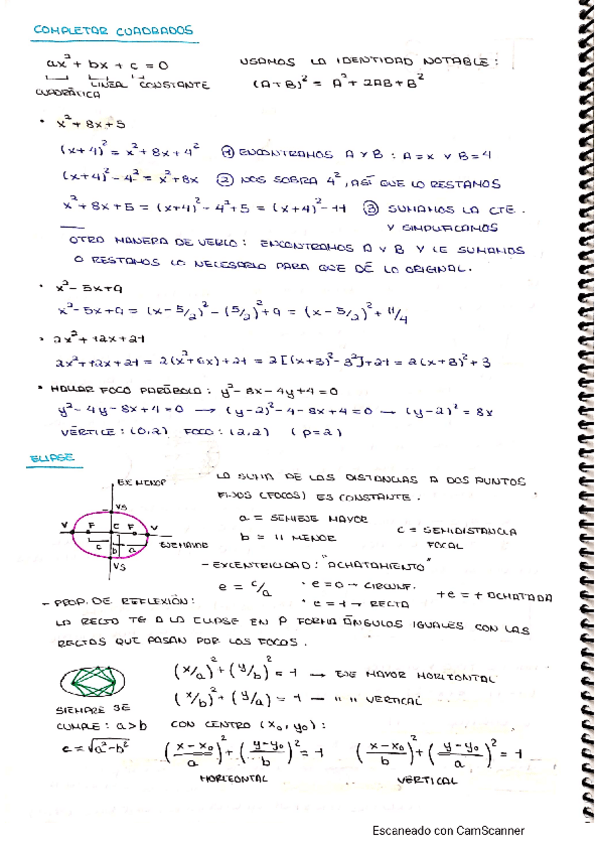 COMPLETAR CUADRADOS
ax² + bx + c = 0 USAMOS LA IDENTIDAD NOTABLE:
LINEAL CONSTANTE (A+B)² = A² + 2AB + B²
CUADRÁTICA
• x² + 8x + 5
(x+4)² = x² + 8x + 4² ① ENCONTRAMOS A Y B : A = x Y B = 4
(x+4)² - 4² = x² + 8x ② NOS SOBRA 4², ASÍ QUE LO RESTAMOS
x² + 8x + 5 = (x+4)² - 4² + 5 = (x+4)² - 11 ③ SUMAMOS LA CTE.
Y SIMPLIFICAMOS
OTRA MANERA DE VERLO: ENCONTRAMOS A Y B Y LE SUMAMOS
O RESTAMOS LO NECESARIO PARA QUE DÉ LO ORIGINAL.
• x² - 5x + 9
x² - 5x + 9 = (x - 5/2)² - (5/2)² + 9 = (x - 5/2)² + 11/4
• 2x² + 12x + 21
2x² + 12x + 21 = 2(x² + 6x) + 21 = 2[(x+3)² - 3²] + 21 = 2(x+3)² + 3
• HALLAR FOCO PARÁBOLA: y² - 8x - 4y + 4 = 0
y² - 4y - 8x + 4 = 0 → (y-2)² - 4 - 8x + 4 = 0 → (y-2)² = 8x
VÉRTICE: (0,2) FOCO: (2,2) (p=2)
ELIPSE
EJE MENOR
LA SUMA DE LAS DISTANCIAS A DOS PUNTOS
FIJOS (FOCOS) ES CONSTANTE.
VS
V F C F V
c b a
EJE MAYOR
VS
a = SEMIEJE MAYOR
b = 11 MENOR
c = SEMIDISTANCIA
FOCAL
- EXCENTRICIDAD: "ACHATAMIENTO"
e = c/a • e = 0 → CIRCUNF.
• e = 1 → RECTA
+e = + ACHATADA
- PROP. DE REFLEXIÓN:
LA RECTA TG A LA ELIPSE EN P FORMA ÁNGULOS IGUALES CON LAS
RECTAS QUE PASAN POR LOS FOCOS.
(x/a)² + (y/b)² = 1 → EJE MAYOR HORIZONTAL
(x/b)² + (y/a)² = 1 → 11 11 VERTICAL
SIEMPRE SE
CUMPLE: a > b CON CENTRO (x₀, y₀):
c = √a² - b² ((x - x₀)/a)² + ((y - y₀)/b)² = 1 ((x - x₀)/b)² + ((y - y₀)/a)² = 1
HORIZONTAL VERTICAL
Escaneado con CamScanner